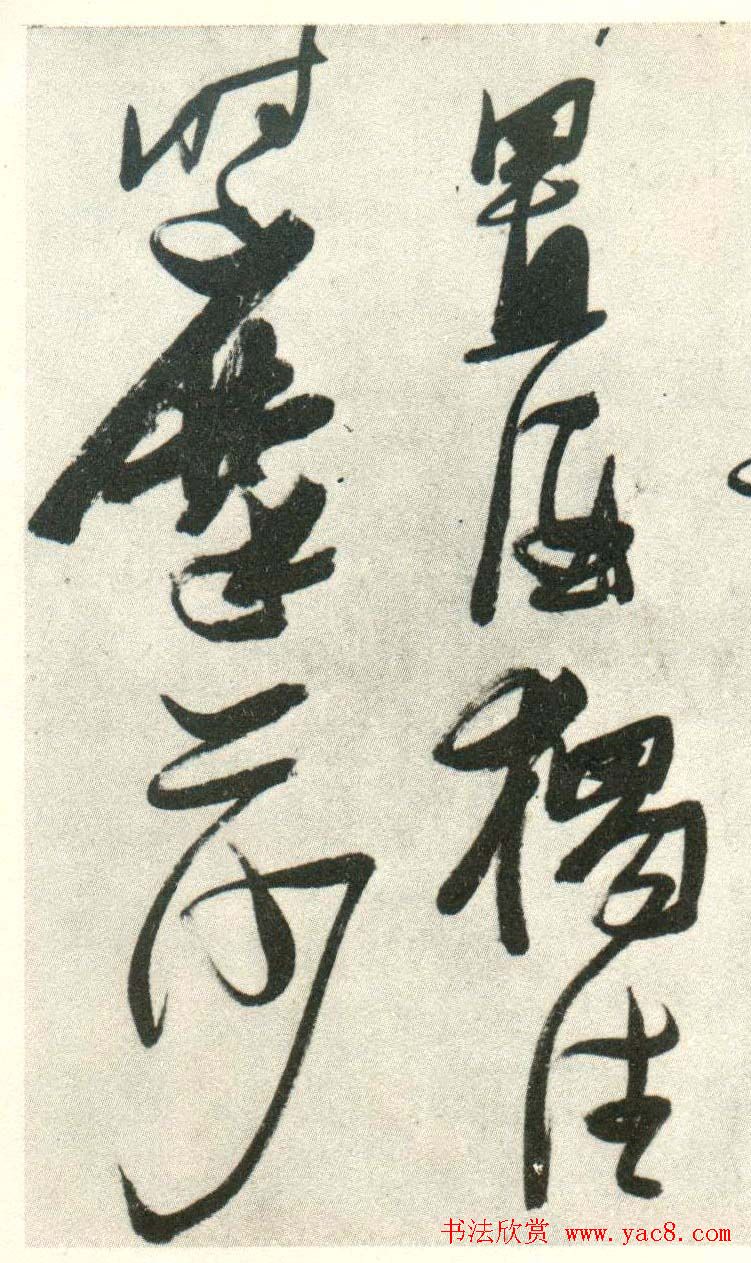 置酒獨往
時摩莎
书法欣赏 www.yac8.com